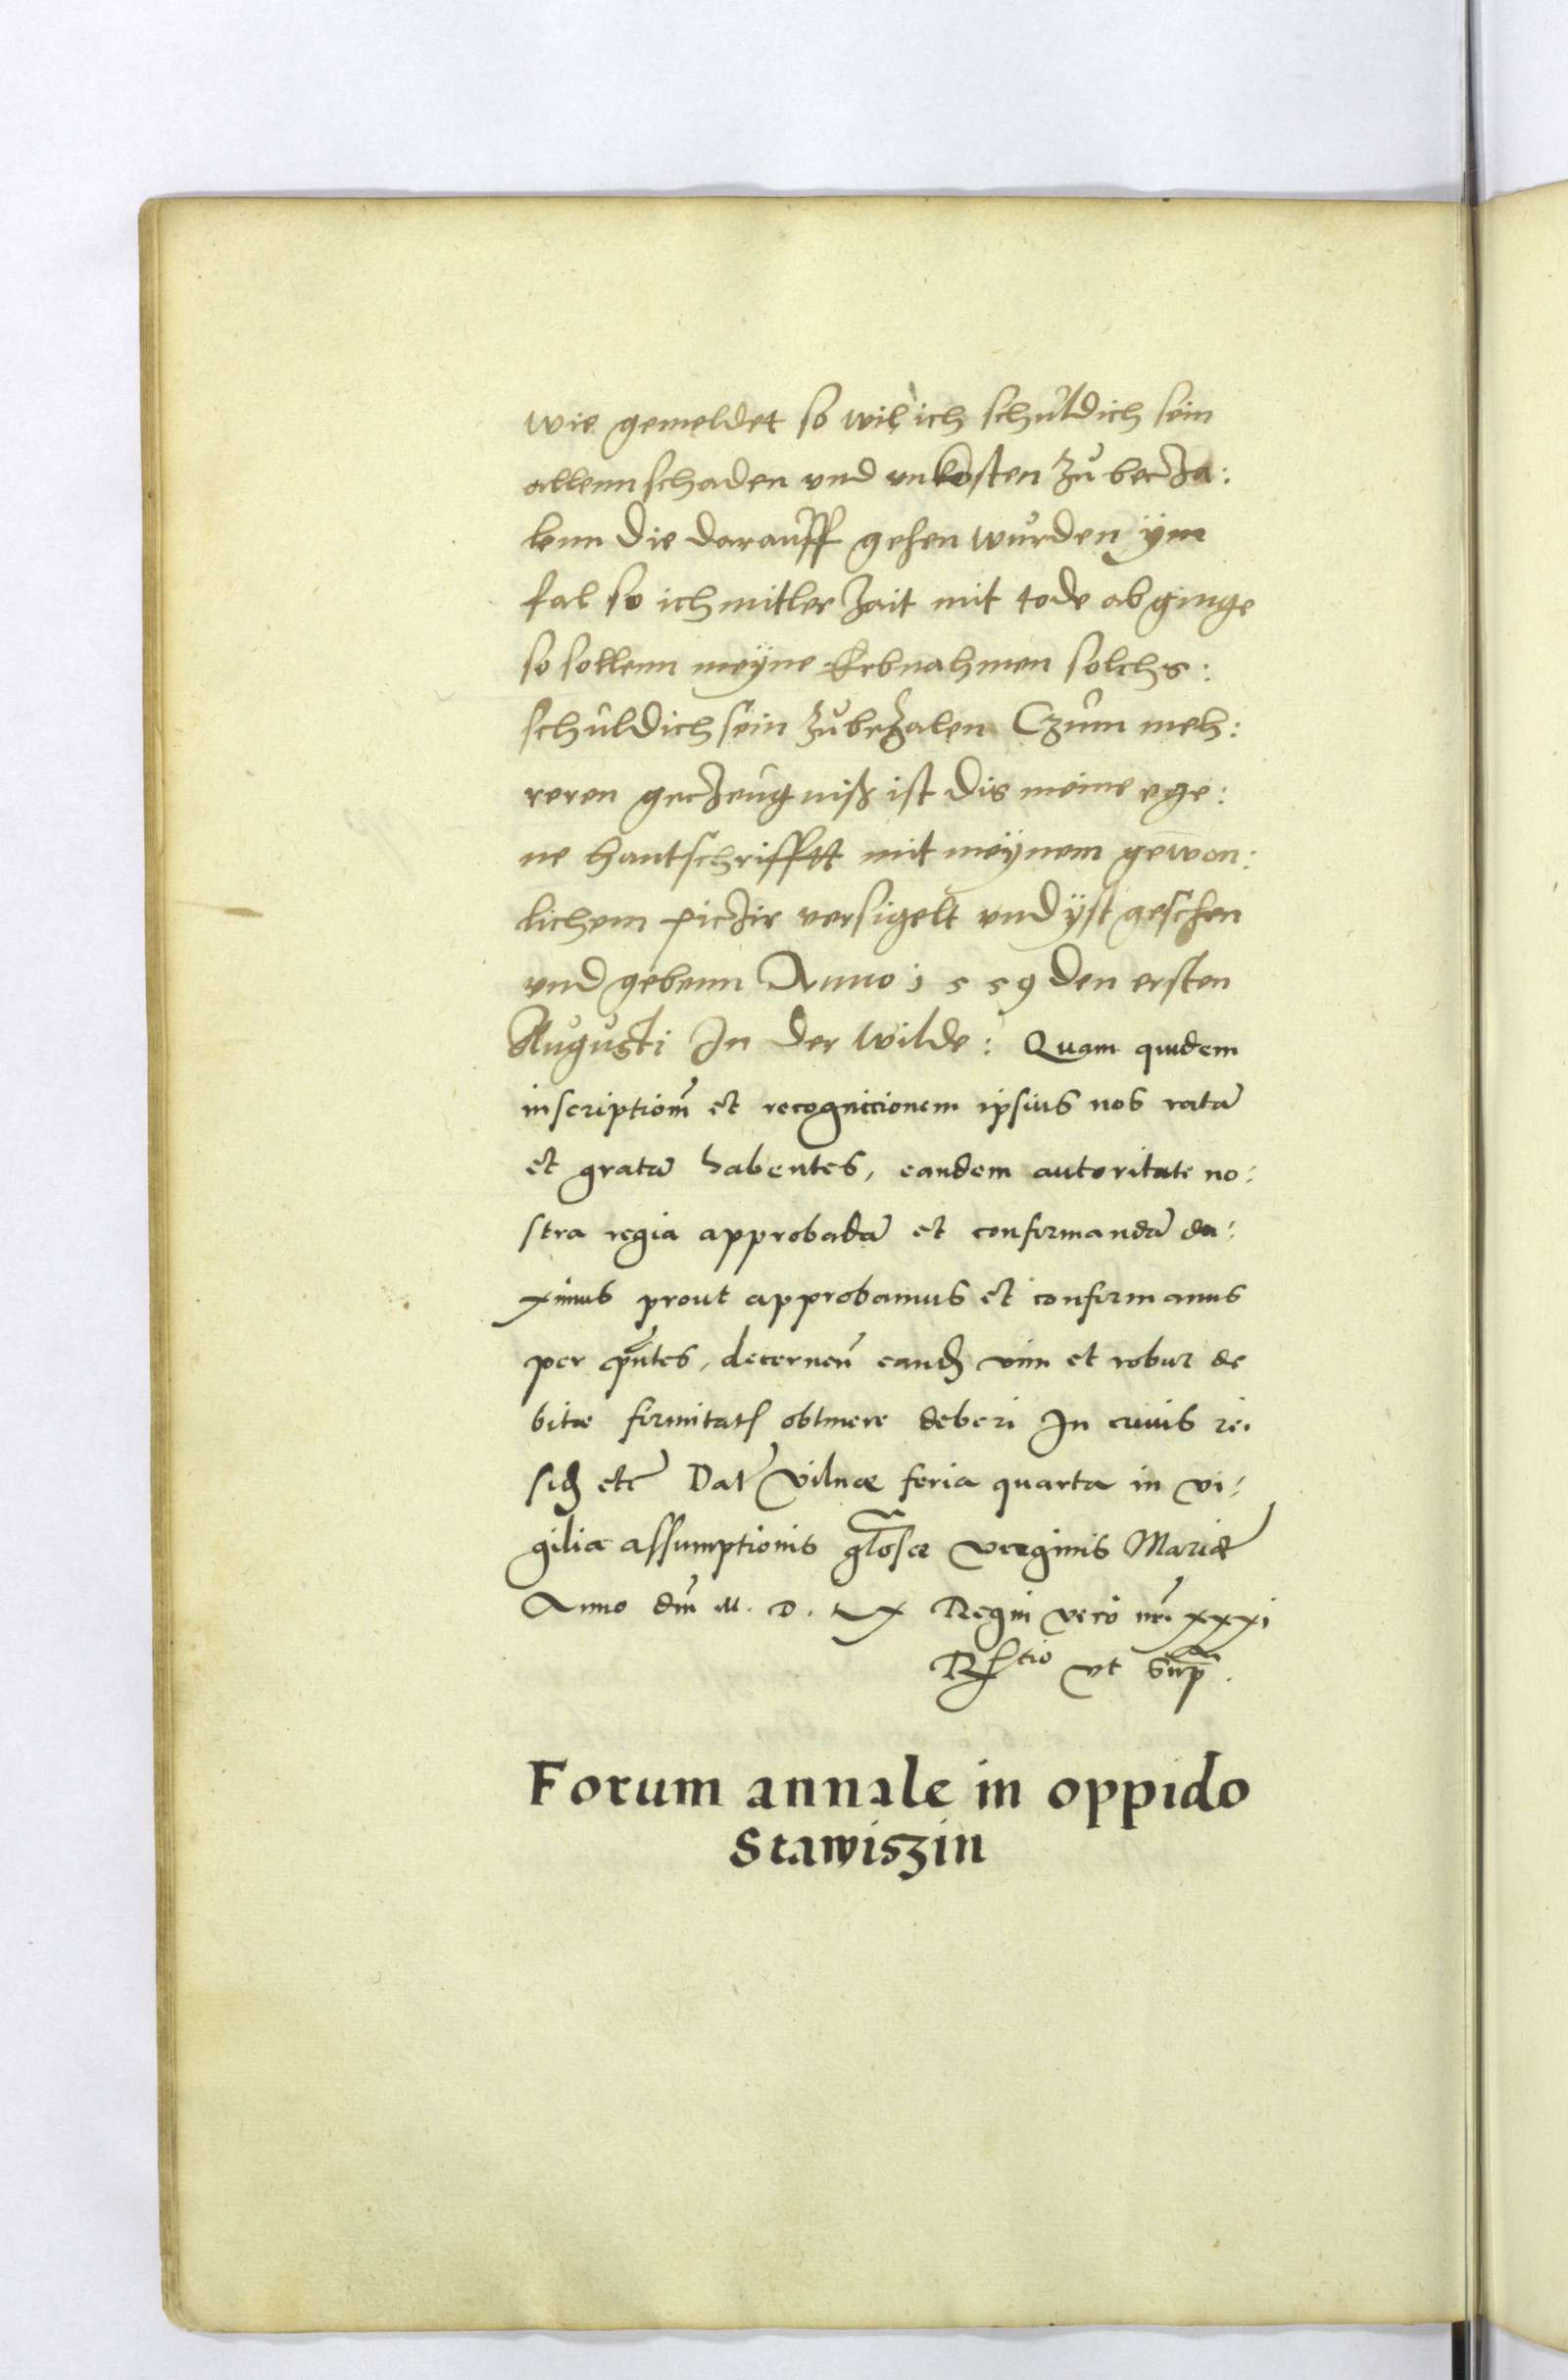 wie gemeldet so wil ich schuldich sein
allenn schaden vnd vnkosten zu becza:
lenn die darauff gehen wurden ym
fal so ich mitler zait mit tode abginge
so sollenn meyne Erbnahmen solchs:
schuldich sein zubezalen Czum meh:
reren geczeugniß ist dis meine ege:
ne hantschrifftt mit meynem gewon:
lichem piczir versigelt vnd yst geschen
vnd gebenn Anno 1559 den ersten
Augusti In der Wilde: Quam quidem
inscriptiom̄ et recognicionem ipsius nos ratā
et gratā habentes, eandem autoritate no:
stra regia approbādā et confirmandā du:
ximus prout approbamus et confirmamus
per p̄ntes, decernen̄ eandꝫ vim et robur de
bitæ firmitatꝭ obtinere deberi In cuius rei
sidꝫ etc̄ Dat̄ Vilnæ feria quarta in vi:
gilia assumptionis gl̄osæ virginis Mariæ
Anno dn̄i M. D. LX Regni vero nr̄i xxxi
Rꝭtio vt sup̄ᵃ.
Forum annale in oppido
Stawiszin